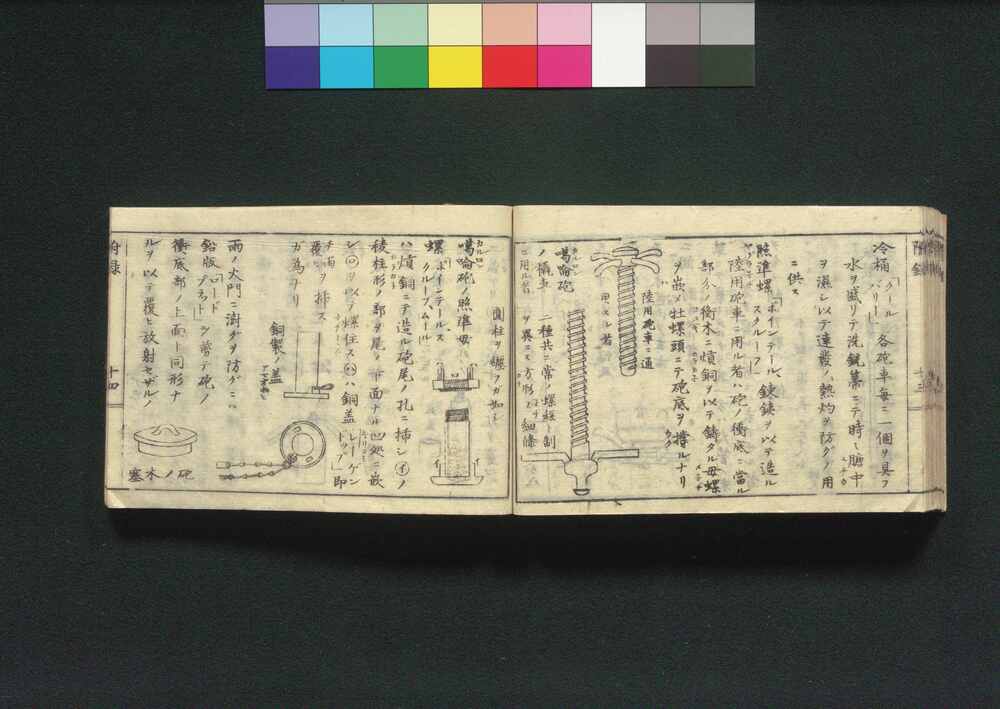 冷桶「クール
バリー」各砲車毎ニ一個ヲ具フ
水ヲ盛リテ洗銃帚ニテ時々膅中
ヲ濕シ以テ連發ノ熱灼ヲ防グノ用
ニ供ス
照準螺「ポインテールス
スクルーフ」鍊鐵ヲ以テ造ル
陸用砲車ニ用ル者ハ砲ノ衝底ニ當ル
部分ノ衡木ニ熕銅ヲ以テ鋳タル母螺
ヲ嵌メ牡螺頭ニテ砲底ヲ撐ルナリ
陸用砲車ニ通
用スル者
噶論砲
ノ橇車
ニ用ル者
二種共ニ常ノ螺經ト制
ヲ異ニス方形ニメ細條
圓柱ヲ纏フガ如シ
噶論砲ノ照準母
螺「ポインテールス
クルーフムール」
ハ熕銅ニテ造ル砲尾ノ孔ニ挿シ㋑ノ
稜柱形ノ部ヲ尾ノ下面ナル凹処ニ嵌
シ㋺ヲ以テ螺住ス㋩ハ銅盖「レーゲン
ドップ」即
チ雨
覆ヒヲ挿ス
ガ為ナリ
銅製ノ盖
雨ノ火門ニ澍グヲ防グニハ
鉛版「ロード
プラット」ヲ嘗テ砲ノ
衝底部ノ上面ト同形ナ
ルヲ以テ覆ヒ放射セザルノ
砲ノ木塞
附録
十三
十四